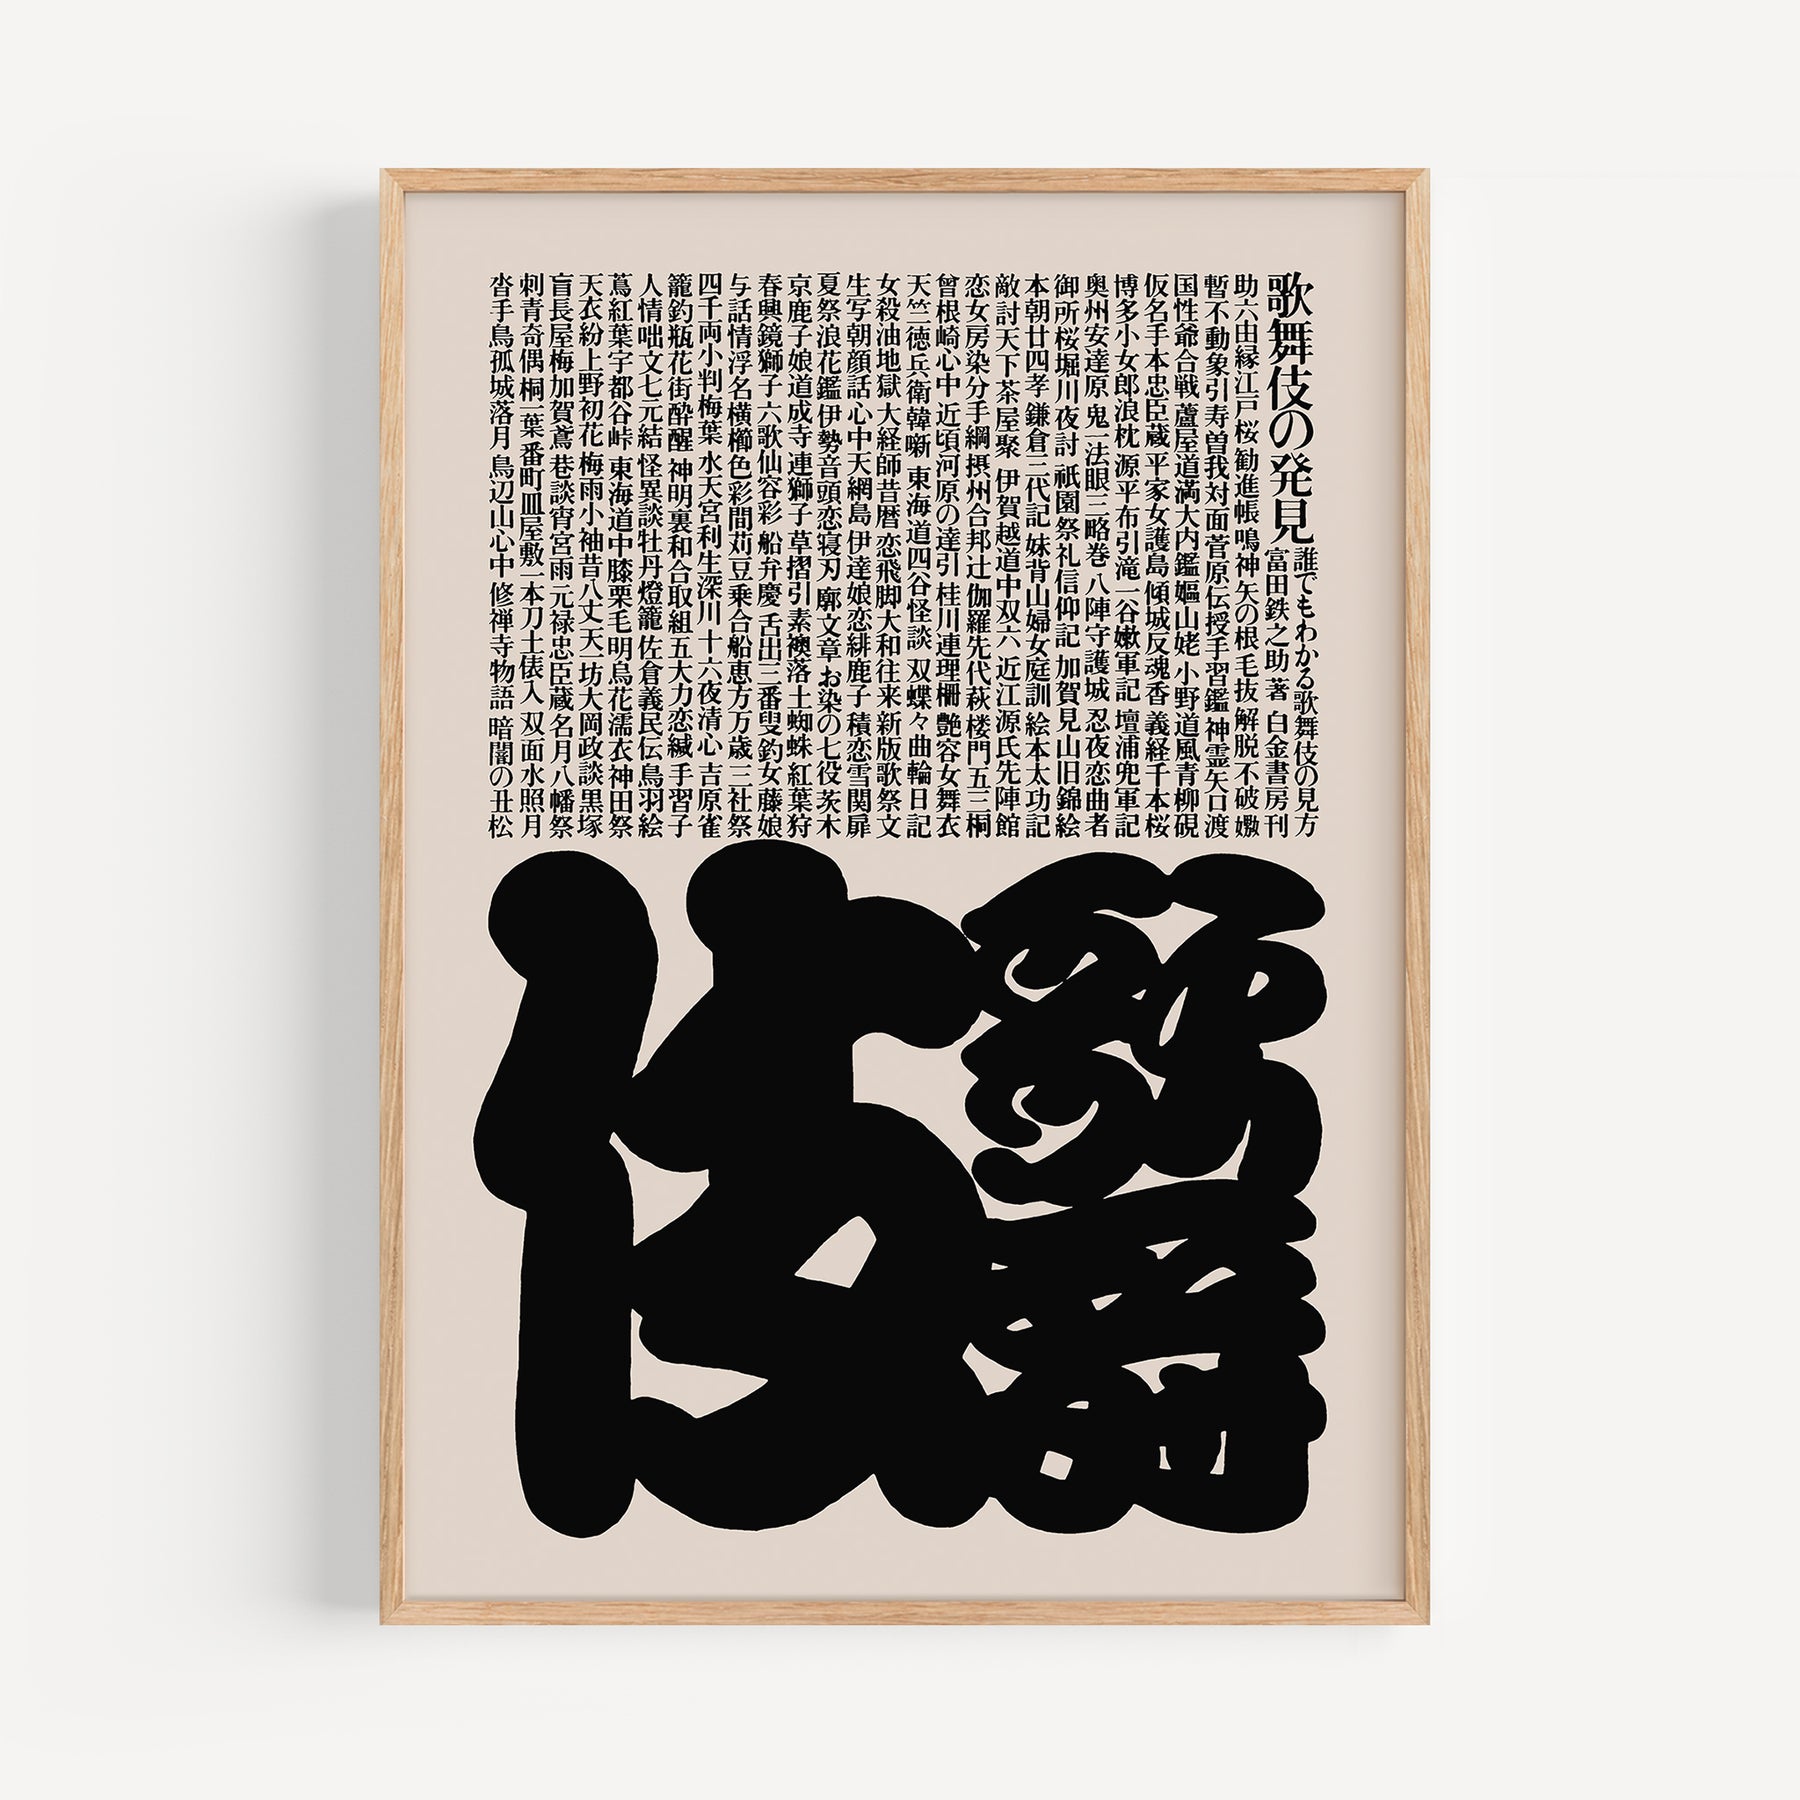 歌舞伎の発見
誰でもわかる歌舞伎の見方
富田鉄之助 著 白金書房刊
助六由縁江戸桜 勧進帳 鳴神 矢の根 毛抜 解脱 不破 嫐
暫 不動 象引 寿曽我対面 菅原伝授手習鑑 神霊矢口渡
国性爺合戦 蘆屋道満大内鑑 嫗山姥 小野道風青柳硯
仮名手本忠臣蔵 平家女護島 傾城反魂香 義経千本桜
博多小女郎浪枕 源平布引滝 一谷嫩軍記 壇浦兜軍記
奥州安達原 鬼一法眼三略巻 八陣守護城 忍夜恋曲者
御所桜堀川夜討 祇園祭礼信仰記 加賀見山旧錦絵
本朝廿四孝 鎌倉三代記 妹背山婦女庭訓 絵本太功記
敵討天下茶屋聚 伊賀越道中双六 近江源氏先陣館
恋女房染分手綱 摂州合邦辻 伽羅先代萩 楼門五三桐
曾根崎心中 近頃河原の達引 桂川連理柵 艶容女舞衣
天竺徳兵衛韓噺 東海道四谷怪談 双蝶々曲輪日記
女殺油地獄 大経師昔暦 恋飛脚大和往来 新版歌祭文
生写朝顔話 心中天網島 伊達娘恋緋鹿子 積恋雪関扉
夏祭浪花鑑 伊勢音頭恋寝刃 廓文章 お染の七役 茨木
京鹿子娘道成寺 連獅子 草摺引 素襖落 土蜘蛛 紅葉狩
春興鏡獅子 六歌仙容彩 船弁慶 舌出三番叟 釣女 藤娘
与話情浮名横櫛 色彩間苅豆 乗合船恵方万歳 三社祭
四千両小判梅葉 水天宮利生深川 十六夜清心 吉原雀
籠釣瓶花街酔醒 神明裏和合取組 五大力恋緘 手習子
人情咄文七元結 怪異談牡丹燈籠 佐倉義民伝 鳥羽絵
蔦紅葉宇都谷峠 東海道中膝栗毛 明烏花濡衣 神田祭
天衣紛上野初花 梅雨小袖昔八丈 天一坊大岡政談 黒塚
盲長屋梅加賀鳶 巷談宵宮雨 元禄忠臣蔵 名月八幡祭
刺青奇偶 桐一葉 番町皿屋敷 一本刀土俵入 双面水照月
沓手鳥孤城落月 鳥辺山心中 修禅寺物語 暗闇の丑松
歌舞伎